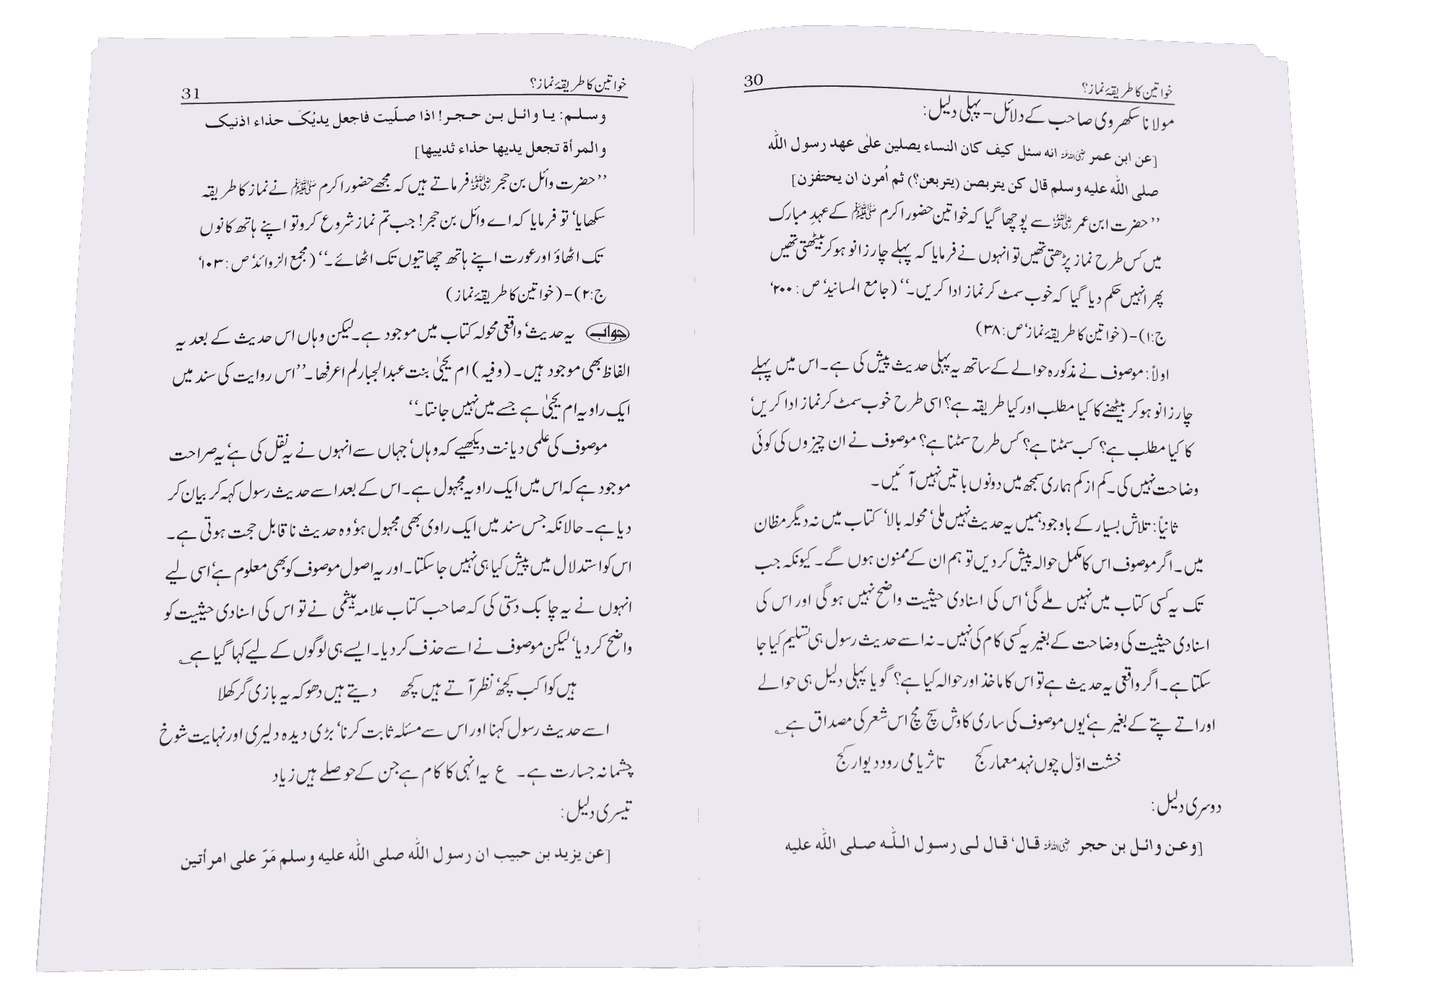 خواتین کا طریقۂ نماز؟
30
مولانا سکھروی صاحب کے دلائل – پہلی دلیل:
[عن ابن عمر رضی اللہ عنہ انه سئل کیف کان النساء یصلین علیٰ عهد رسول الله
صلی الله علیه وسلم قال کن یتربصن (یتربعن؟) ثم أُمرن ان یحتفزن]
’’حضرت ابن عمر رضی اللہ عنہ سے پوچھا گیا کہ خواتین حضور اکرم ﷺ کے عہدِ مبارک
میں کس طرح نماز پڑھتی تھیں تو انہوں نے فرمایا کہ پہلے چار زانو ہو کر بیٹھتی تھیں
پھر انہیں حکم دیا گیا کہ خوب سمٹ کر نماز ادا کریں۔‘‘ (جامع المسانید‘ ص: ۲۰۰‘
ج:۱)–(خواتین کا طریقۂ نماز‘ ص: ۳۸)
اولاً: موصوف نے مذکورہ حوالے کے ساتھ یہ پہلی حدیث پیش کی ہے۔ اس میں پہلے
چار زانو ہو کر بیٹھنے کا کیا مطلب اور کیا طریقہ ہے؟ اسی طرح خوب سمٹ کر نماز ادا کریں‘
کا کیا مطلب ہے؟ کب سمٹنا ہے؟ کس طرح سمٹنا ہے؟ موصوف نے ان چیزوں کی کوئی
وضاحت نہیں کی۔ کم از کم ہماری سمجھ میں دونوں باتیں نہیں آئیں۔
ثانیاً: تلاش بسیار کے باوجود ہمیں یہ حدیث نہیں ملی‘ محولہ بالا کتاب میں نہ دیگر مظان
میں۔ اگر موصوف اس کا مکمل حوالہ پیش کر دیں تو ہم ان کے ممنون ہوں گے۔ کیونکہ جب
تک یہ کسی کتاب میں نہیں ملے گی‘ اس کی اسنادی حیثیت واضح نہیں ہو گی اور اس کی
اسنادی حیثیت کی وضاحت کے بغیر یہ کسی کام کی نہیں۔ نہ اسے حدیث رسول ہی تسلیم کیا جا
سکتا ہے۔ اگر واقعی یہ حدیث ہے تو اس کا ماخذ اور حوالہ کیا ہے؟ گویا پہلی دلیل ہی حوالے
اور اتے پتے کے بغیر ہے‘ یوں موصوف کی ساری کاوش سچ مچ اس شعر کی مصداق ہے
خشت اوّل چوں نہد معمار کج تا ثریا می رود دیوار کج
دوسری دلیل:
[وعن وائل بن حجر رضی اللہ عنہ قال‘ قال لی رسول اللّٰه صلی اللّٰه علیه
خواتین کا طریقۂ نماز؟
31
وسلم: یا وائل بن حجر! اذا صلّیت فاجعل یدیْکَ حذاء اذنیک
والمرأة تجعل یدیها حذاء ثدییها]
’’حضرت وائل بن حجر رضی اللہ عنہ فرماتے ہیں کہ مجھے حضور اکرم ﷺ نے نماز کا طریقہ
سکھایا‘ تو فرمایا کہ اے وائل بن حجر! جب تم نماز شروع کرو تو اپنے ہاتھ کانوں
تک اٹھاؤ اور عورت اپنے ہاتھ چھاتیوں تک اٹھائے۔‘‘ (مجمع الزوائد‘ ص: ۱۰۳‘
ج:۲)–(خواتین کا طریقۂ نماز)
جواب یہ حدیث‘ واقعی محولہ کتاب میں موجود ہے۔ لیکن وہاں اس حدیث کے بعد یہ
الفاظ بھی موجود ہیں۔ (وفیہ) ام یحییٰ بنت عبدالجبار لم اعرفها۔ ’’اس روایت کی سند میں
ایک راویہ ام یحییٰ ہے جسے میں نہیں جانتا۔‘‘
موصوف کی علمی دیانت دیکھیے کہ وہاں‘ جہاں سے انہوں نے یہ نقل کی ہے‘ یہ صراحت
موجود ہے کہ اس میں ایک راویہ مجہول ہے۔ اس کے بعد اسے حدیث رسول کہہ کر بیان کر
دیا ہے۔ حالانکہ جس سند میں ایک راوی بھی مجہول ہو‘ وہ حدیث ناقابل حجت ہوتی ہے۔
اس کو استدلال میں پیش کیا ہی نہیں جا سکتا۔ اور یہ اصول موصوف کو بھی معلوم ہے‘ اسی لیے
انہوں نے یہ چابک دستی کی کہ صاحب کتاب علامہ ہیثمی نے تو اس کی اسنادی حیثیت کو
واضح کر دیا‘ لیکن موصوف نے اسے حذف کر دیا۔ ایسے ہی لوگوں کے لیے کہا گیا ہے
ہیں کواکب کچھ‘ نظر آتے ہیں کچھ دیتے ہیں دھوکہ یہ بازی گر کھلا
اسے حدیث رسول کہنا اور اس سے مسئلہ ثابت کرنا‘ بڑی دیدہ دلیری اور نہایت شوخ
چشمانہ جسارت ہے۔ ع یہ انہی کا کام ہے جن کے حوصلے ہیں زیاد
تیسری دلیل:
[عن یزید بن حبیب ان رسول اللّٰه صلی اللّٰه علیه وسلم مَرّ علی امرأتین